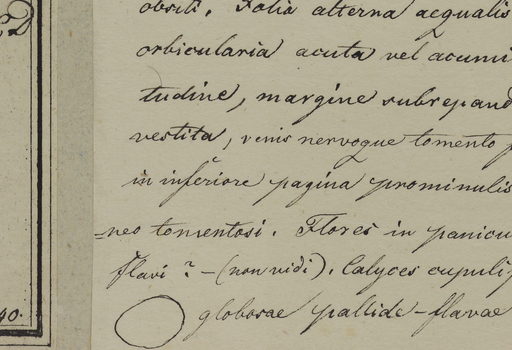 obsiti. Folia alterna aequalis
orbicularia acuta vel acumi
tudine, margine subrepand
vestita, venis nervoque tomento p
in inferiore pagina prominulis
=neo tomentosi. Flores in panicu
flavi? - (non vidi). Calyces cupulif
globosae pallide-flavae
40.